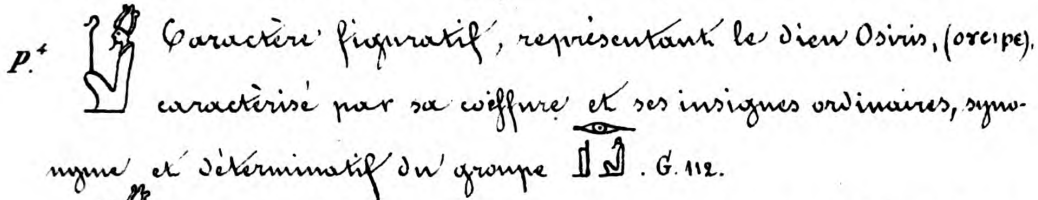 P.⁴ Caractère figuratif, représentant le dieu Osiris, (ⲟⲩⲥⲓⲣⲉ),
caractérisé par sa coëffure et ses insignes ordinaires, syno-
nyme et déterminatif du groupe 𓊨𓁹𓀭 . G. 112.